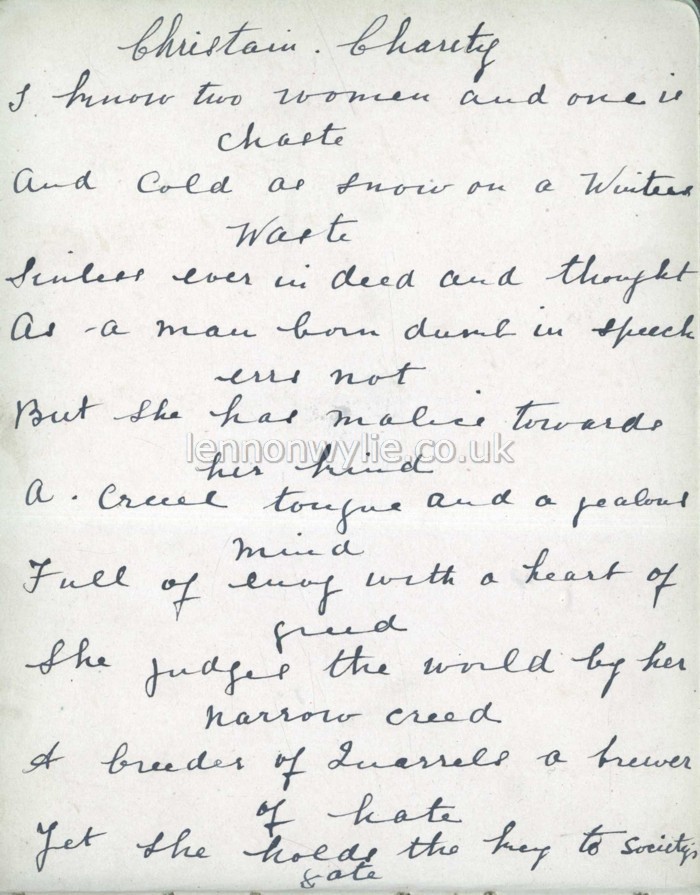 Christain. Charity
I know two women and one is
chaste
And cold as snow on a Winters
Waste
Sinless ever in deed and thought
As a man born dumb in speech
errs not
But she has malice towards
her kind
lennonwylie.co.uk
A. Cruel tongue and a jealous
mind
Full of envy with a heart of
greed
She judges the world by her
narrow creed
A breeder of Quarrels a brewer
of hate
Yet she holds the key to Society's
gate